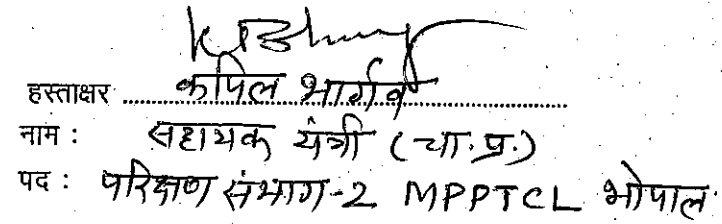 हस्ताक्षर ..........कपिल भार्गव..........
नाम : सहायक यंत्री (चा.प्र.)
पद : परिक्षण संभाग-2 MPPTCL भोपाल